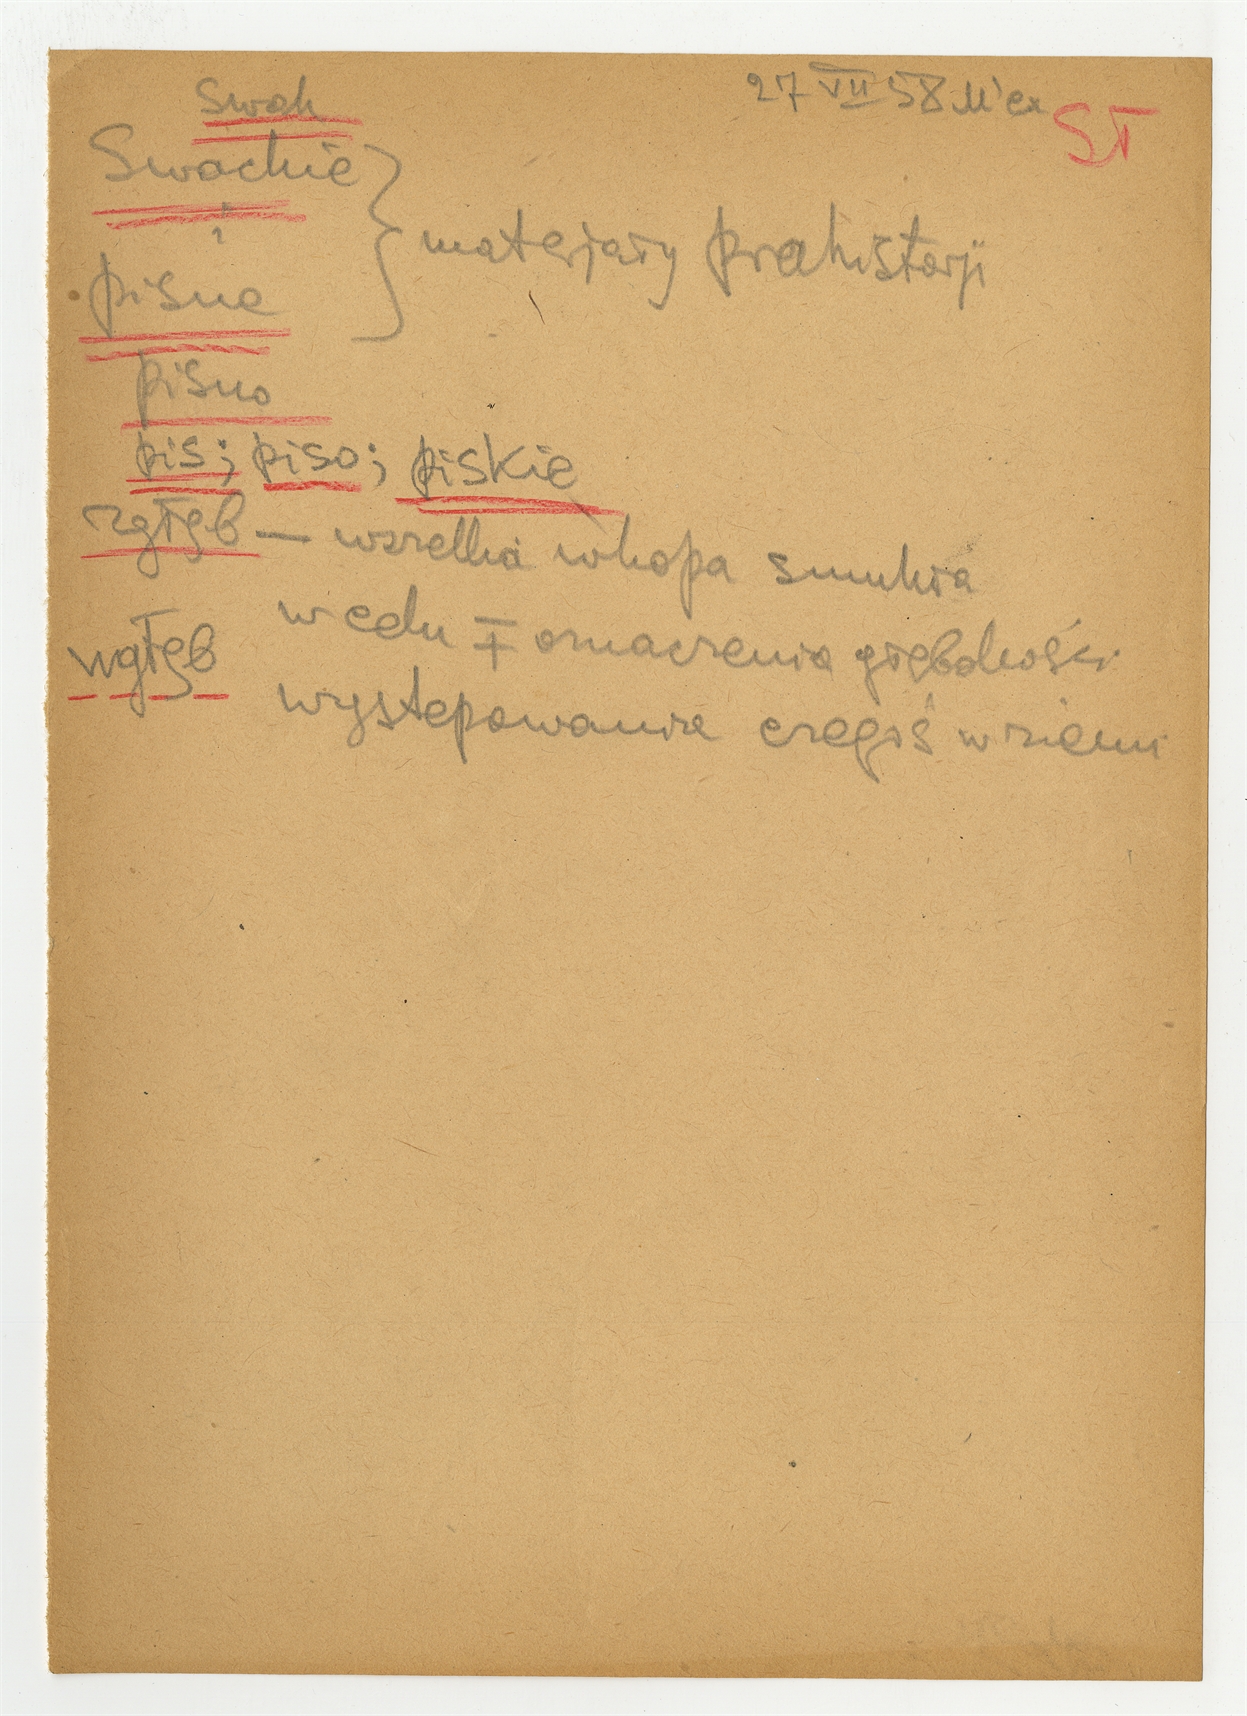 27 VII 58 M'cz SŁ
swak
Swackie
i
pisne
} materjały prahistorji
pisno
pis; piso; piskie
zgłęb — wszelka wkopa smukła
w celu oznaczenia głębokości
wgłęb
występowania czegoś w ziemi